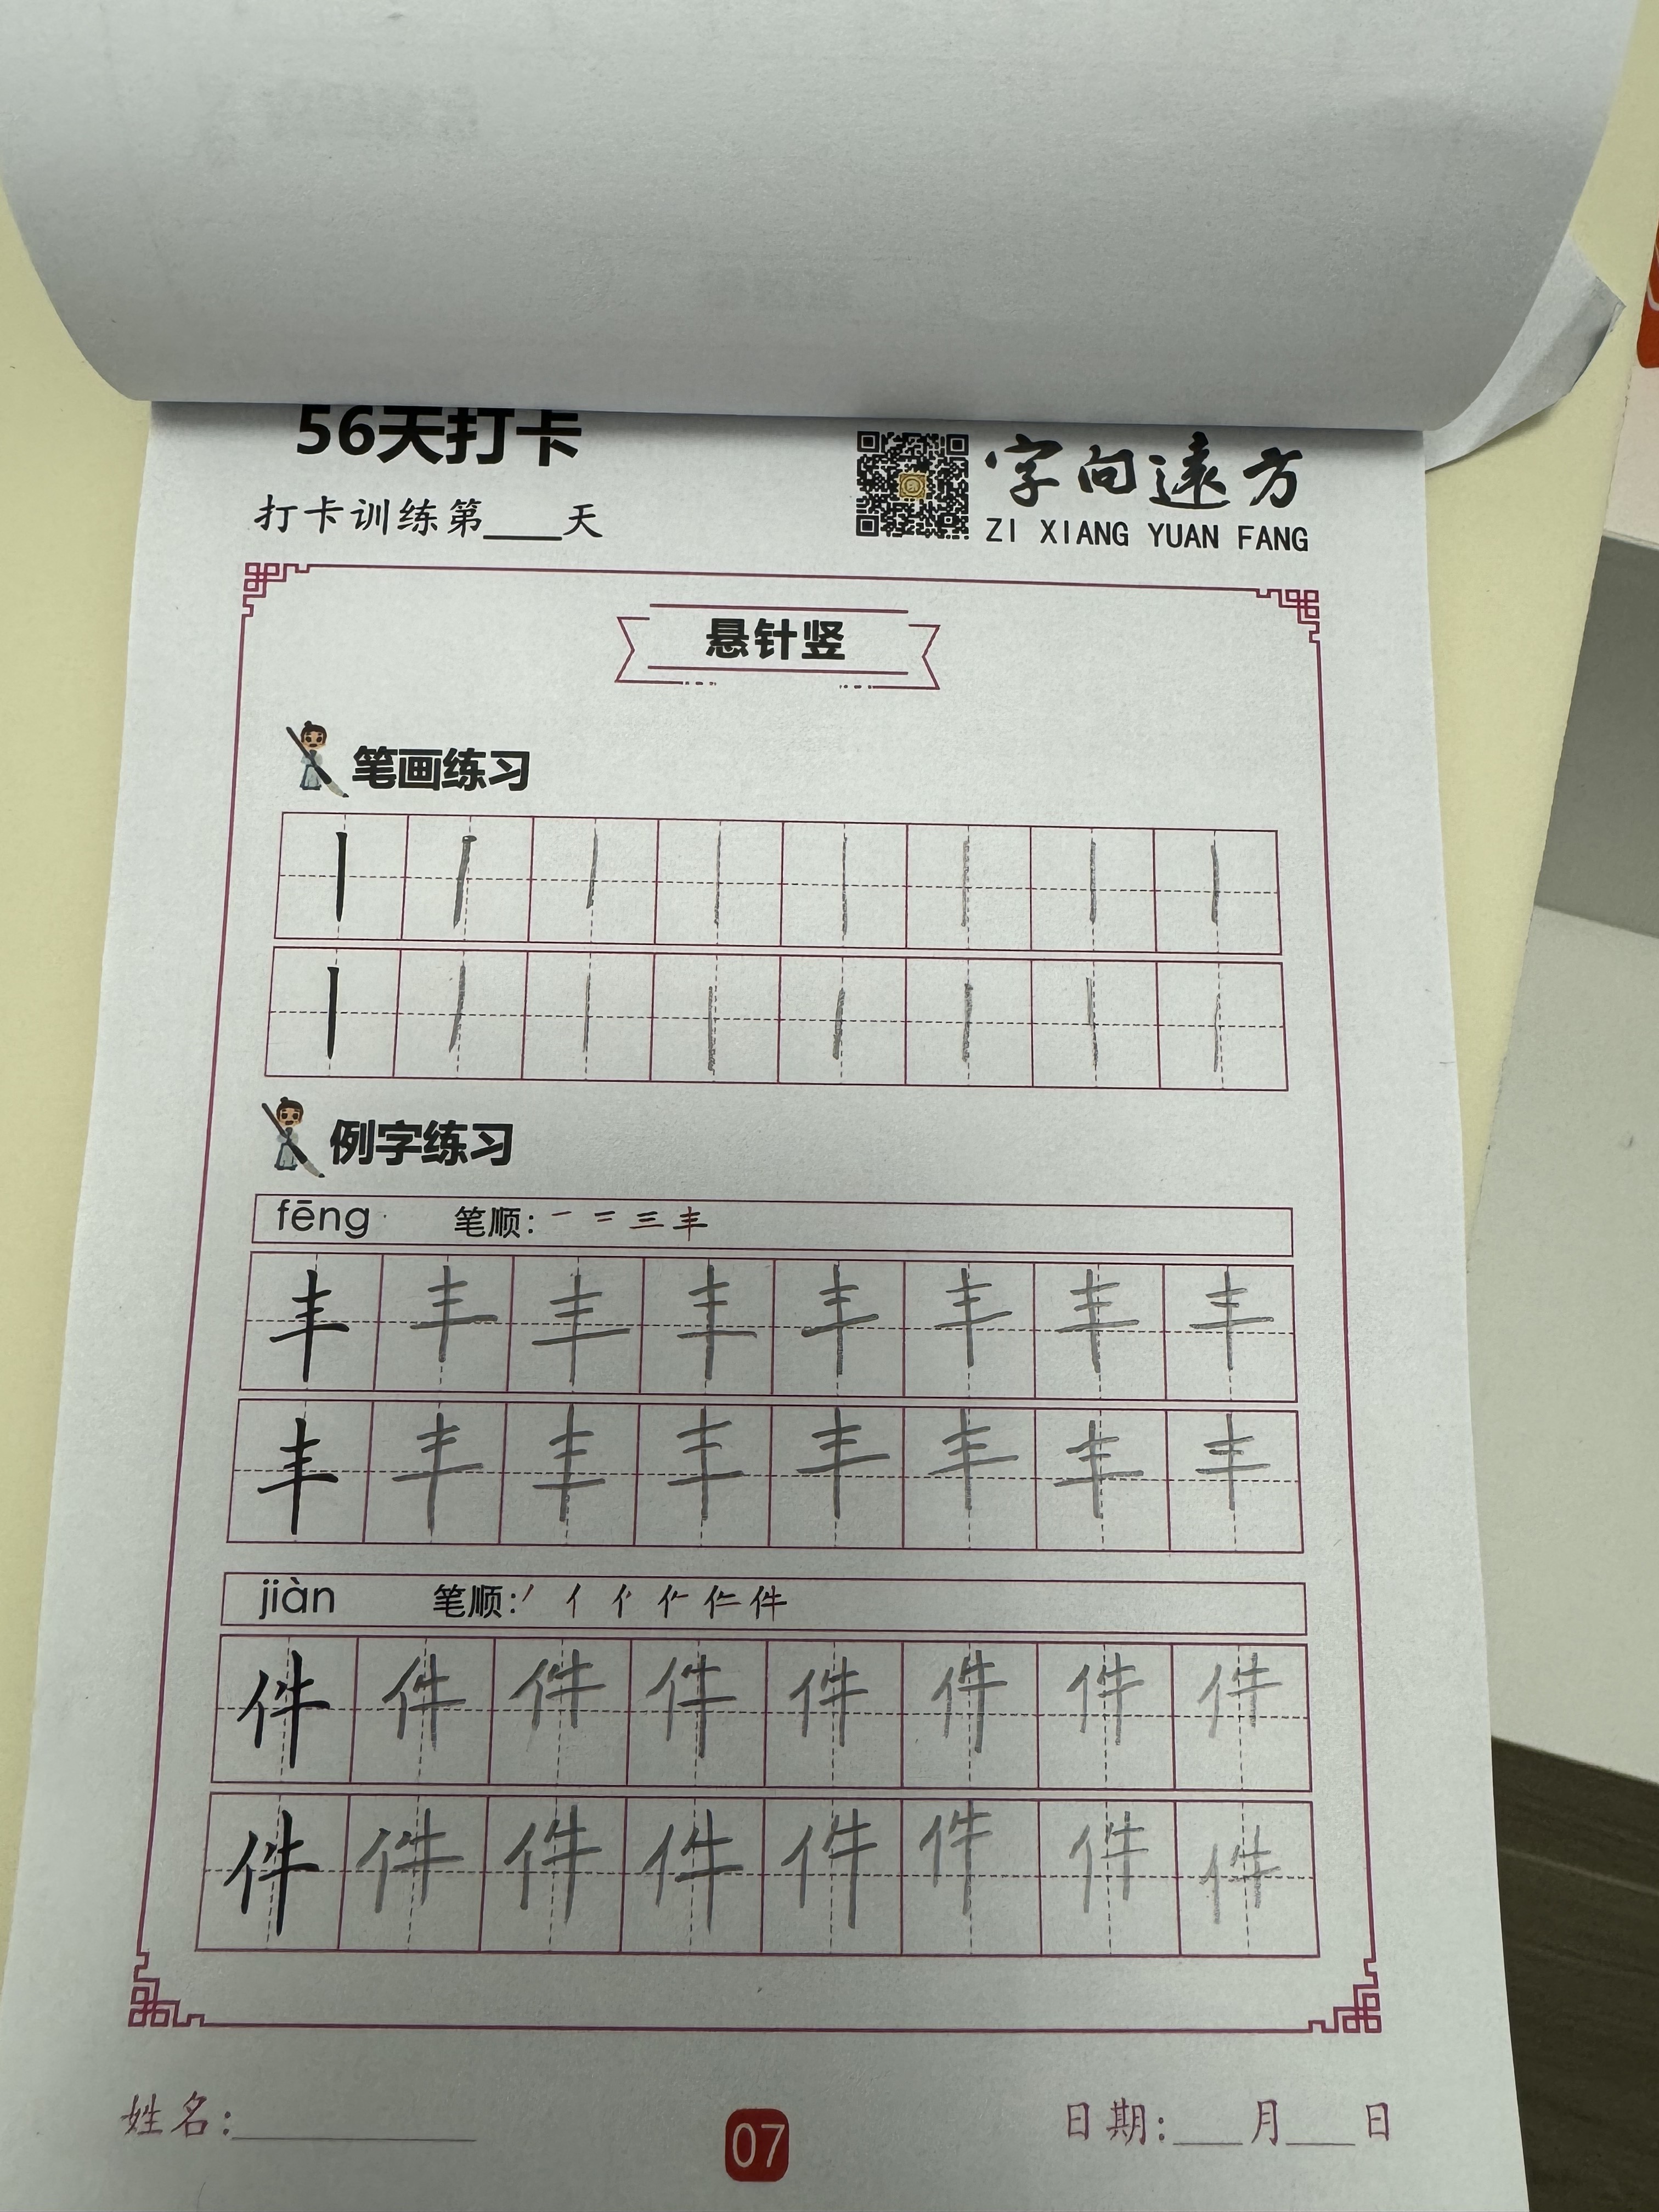 56天打卡
字向遠方
打卡训练第___天
ZI XIANG YUAN FANG
悬针竖
笔画练习
丨 丨 丨 丨 丨 丨 丨 丨
丨 丨 丨 丨 丨 丨 丨 丨
例字练习
fēng 笔顺: 一 二 三 丰
丰 丰 丰 丰 丰 丰 丰 丰
丰 丰 丰 丰 丰 丰 丰 丰
jiàn 笔顺: 丿 亻 件
件 件 件 件 件 件 件 件
件 件 件 件 件 件 件 件
姓名:___________
07
日期:___月___日